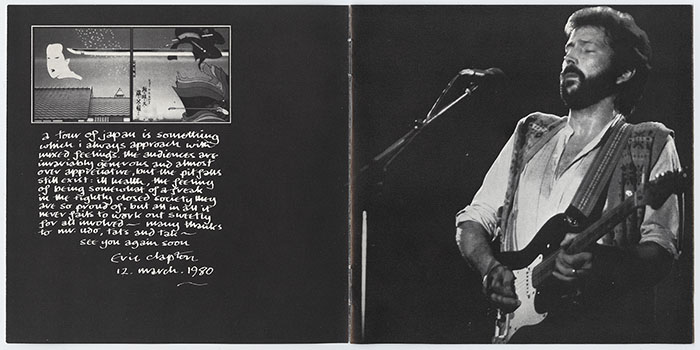 a tour of japan is something
which i always approach with
mixed feelings. the audiences are
invariably generous and almost
over appreciative, but the pitfalls
still exist: ill health, the feeling
of being somewhat of a freak
in the tightly closed society they
are so proud of, but all in all it
never fails to work out sweetly
for all involved — many thanks
to mr udo, tats and tak —
see you again soon
Eric Clapton
12. march. 1980